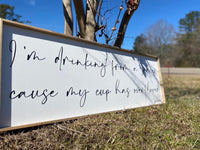 I'm drinking from a
cause my cup has